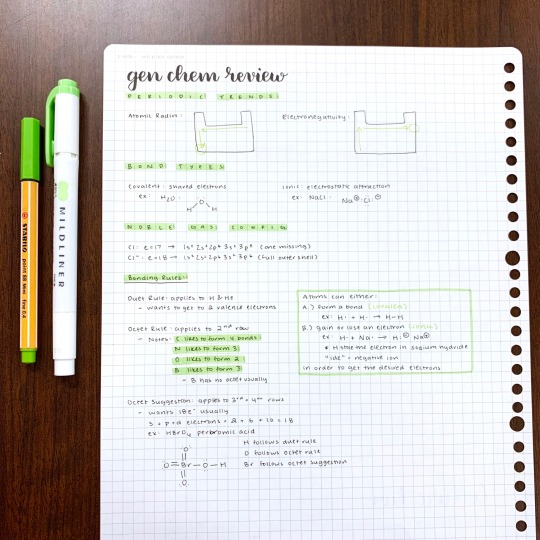 gen chem review
PERIODIC TRENDS:
Atomic Radius: Electronegativity:
BOND TYPES
covalent: shared electrons ionic: electrostatic attraction
ex: H₂O: ex: NaCl: Na⊕ :Cl:⊖
O
H H
NOBLE GAS CONFIG
Cl: e=17 → 1s² 2s² 2p⁶ 3s² 3p⁵ (one missing)
Cl⁻: e=18 → 1s² 2s² 2p⁶ 3s² 3p⁶ (full outer shell)
Bonding Rules:
Duet Rule: applies to H & He
- wants to get to 2 valence electrons
Octet Rule: applies to 2ⁿᵈ row
- Notes: C likes to form 4 bonds
N likes to form 3
O likes to form 2
B likes to form 3
- B has no octet usually
Atoms can either:
A.) form a bond (covalent)
ex: H· + H· → H-H
B.) gain or lose an electron (ionic)
ex: H· + Na· → H:⊖ Na⊕
* H stole the electron in sodium hydride
"ide" = negative ion
in order to get the desired electrons
Octet Suggestion: applies to 3ʳᵈ + 4ᵗʰ rows
- wants 18e⁻ usually
s + p + d electrons = 2 + 6 + 10 = 18
ex: HBrO₄ perbromic acid
H follows duet rule
O follows octet rule
Br follows octet suggestion
O
O=Br-O-H
O
STABILO point 88 fine 0.4
MILDLINER